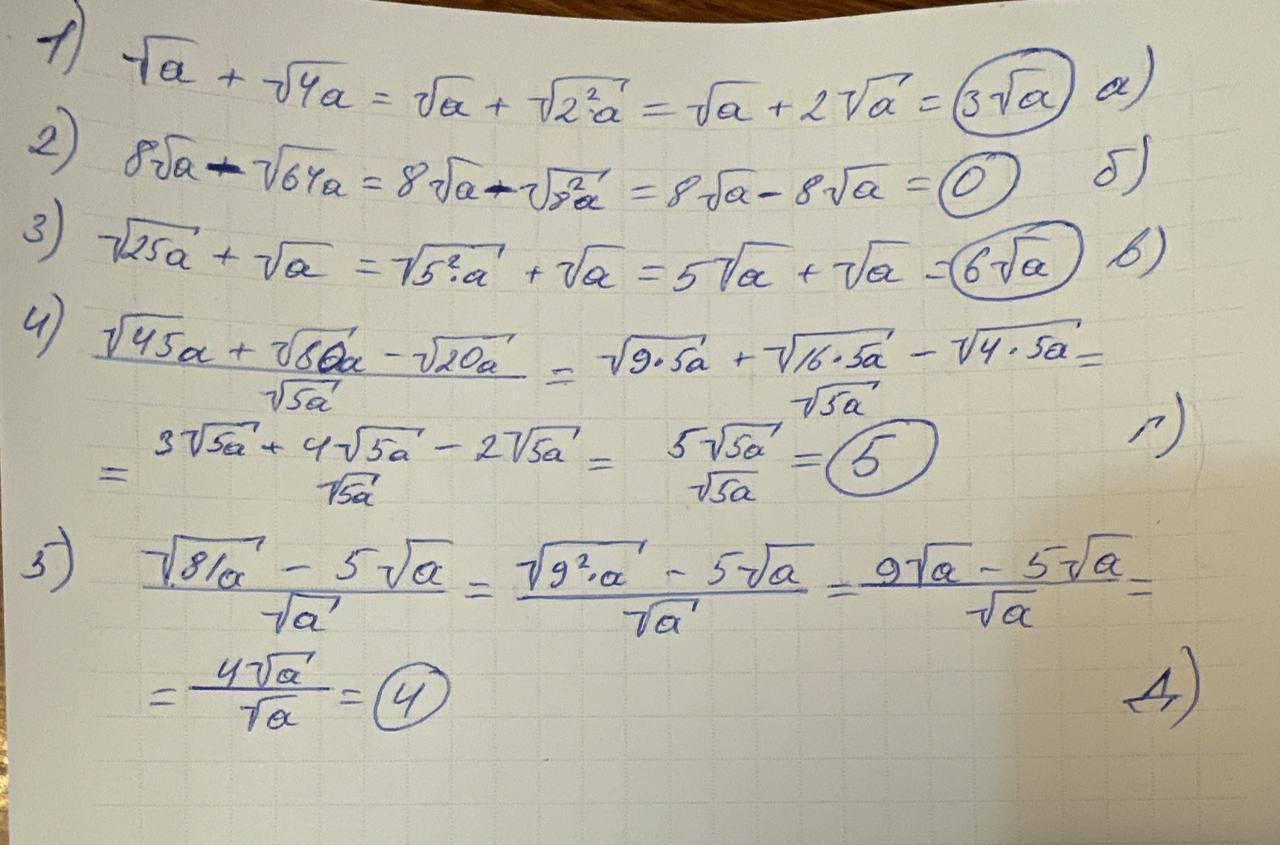 1) √a + √4a = √a + √2²·a = √a + 2√a = 3√a а)
2) 8√a - √64a = 8√a - √8²a = 8√a - 8√a = 0 б)
3) √25a + √a = √5²·a + √a = 5√a + √a = 6√a в)
4) (√45a + √80a - √20a)/√5a = (√9·5a + √16·5a - √4·5a)/√5a =
= (3√5a + 4√5a - 2√5a)/√5a = 5√5a/√5a = 5 г)
5) (√81a - 5√a)/√a = (√9²·a - 5√a)/√a = (9√a - 5√a)/√a =
= 4√a/√a = 4 д)